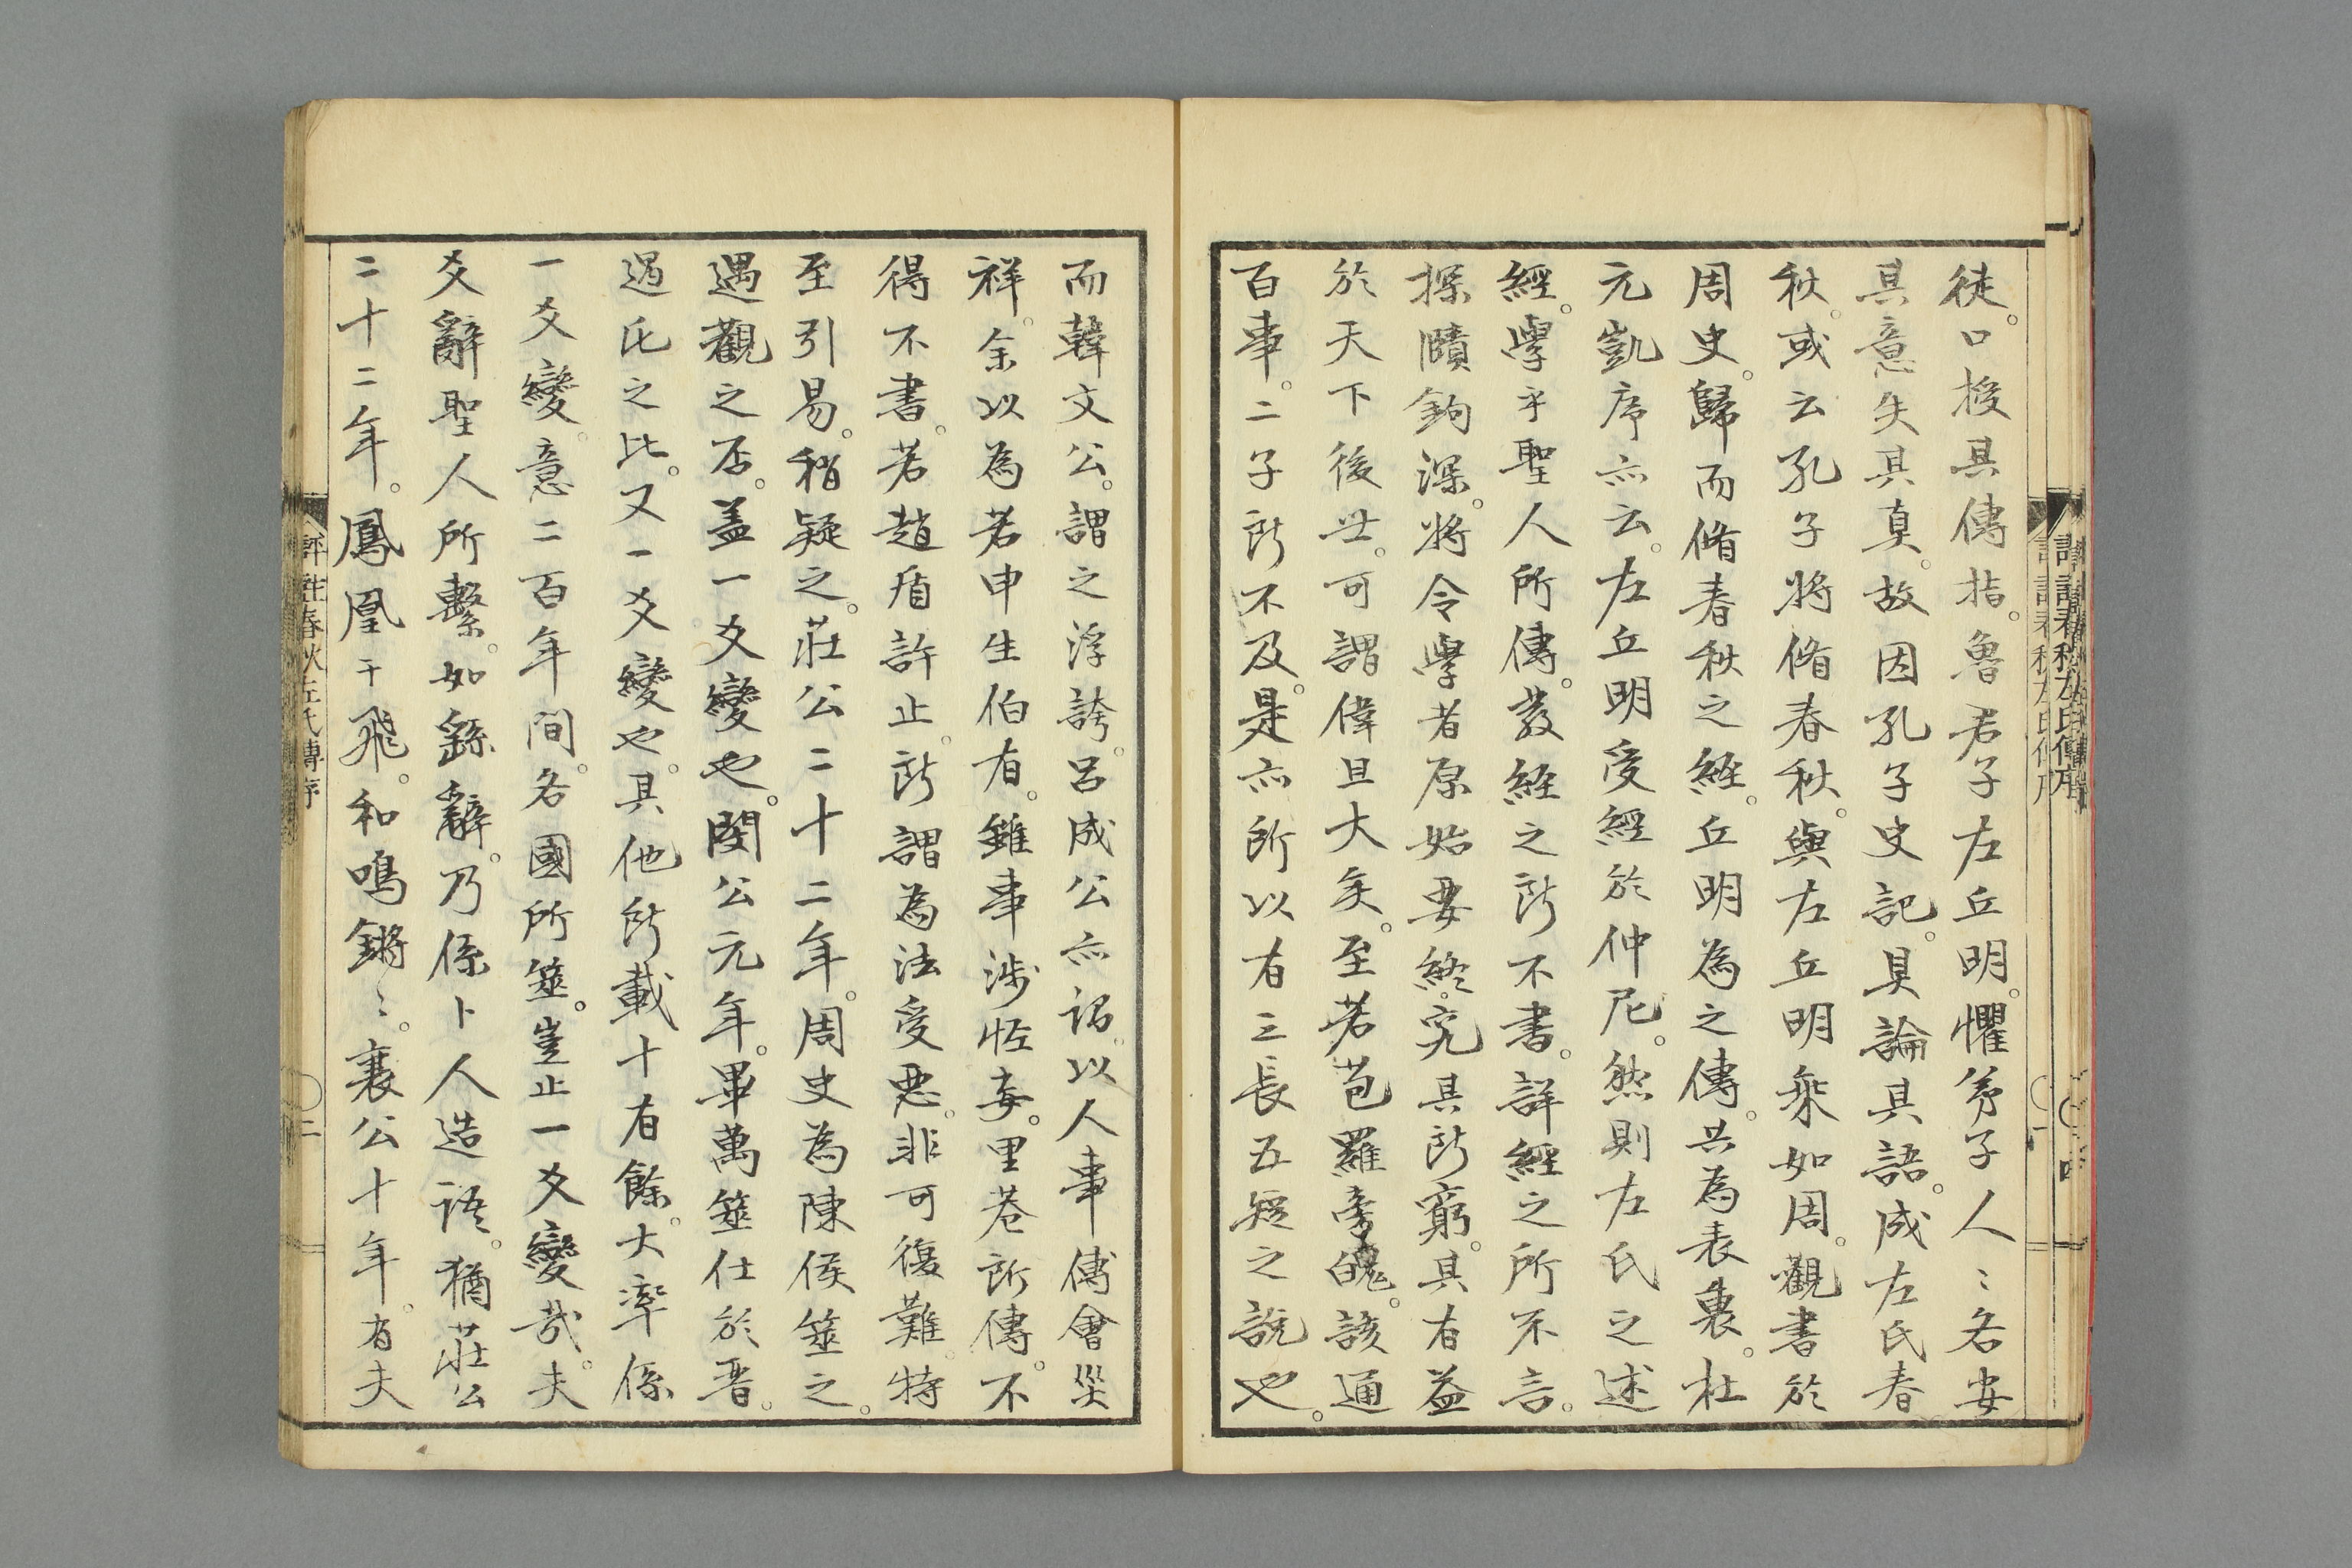 徒。口授其傳指。魯君子左丘明。懼弟子人〻各安
其意失其真。故因孔子史記。具論其語。成左氏春
秋。或云孔子將脩春秋。與左丘明乘如周。觀書於
周史。歸而脩春秋之經。丘明為之傳。共為表裏。杜
元凱序亦云。左丘明受經於仲尼。然則左氏之述
經。學乎聖人所傳。叢經之所不書。詳經之所不言。
探賾鉤深。將令學者原始要終。究其所窮。其有益
於天下後世。可謂偉且大矣。至若苞羅旁魄。該通
百事。二子所不及。是亦所以有三長五短之說也。
而韓文公。謂之浮誇。呂成公亦謂。以人事傅會災
祥。余以為若申生伯有。雖事涉怪妄。里巷所傳。不
得不書。若趙盾許止。所謂為法受惡。非可復難。特
至引易。稍疑之。莊公二十二年。周史為陳侯筮之。
遇觀之否。蓋一爻變也。閔公元年。畢萬筮仕於晉。
遇屯之比。又一爻變也。其他所載十有餘。大率係
一爻變。意二百年間。各國所筮。豈止一爻變哉。夫
爻辭聖人所繫。如繇辭。乃係卜人造語。猶莊公
二十二年。鳳凰于飛。和鳴鏘〻。襄公十年。有夫
評註春秋左氏傳序
二